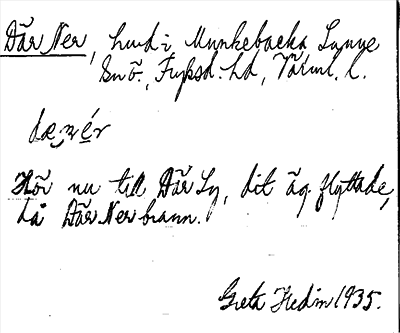 Där Ner, hmd i Munkebacka, Lysvik
Sn ö., Fryksd. hd, Värml. l.
Hör nu till Där Ly, dit äg. flyttade,
då Där Ner brann.
Greta Hedin 1935.